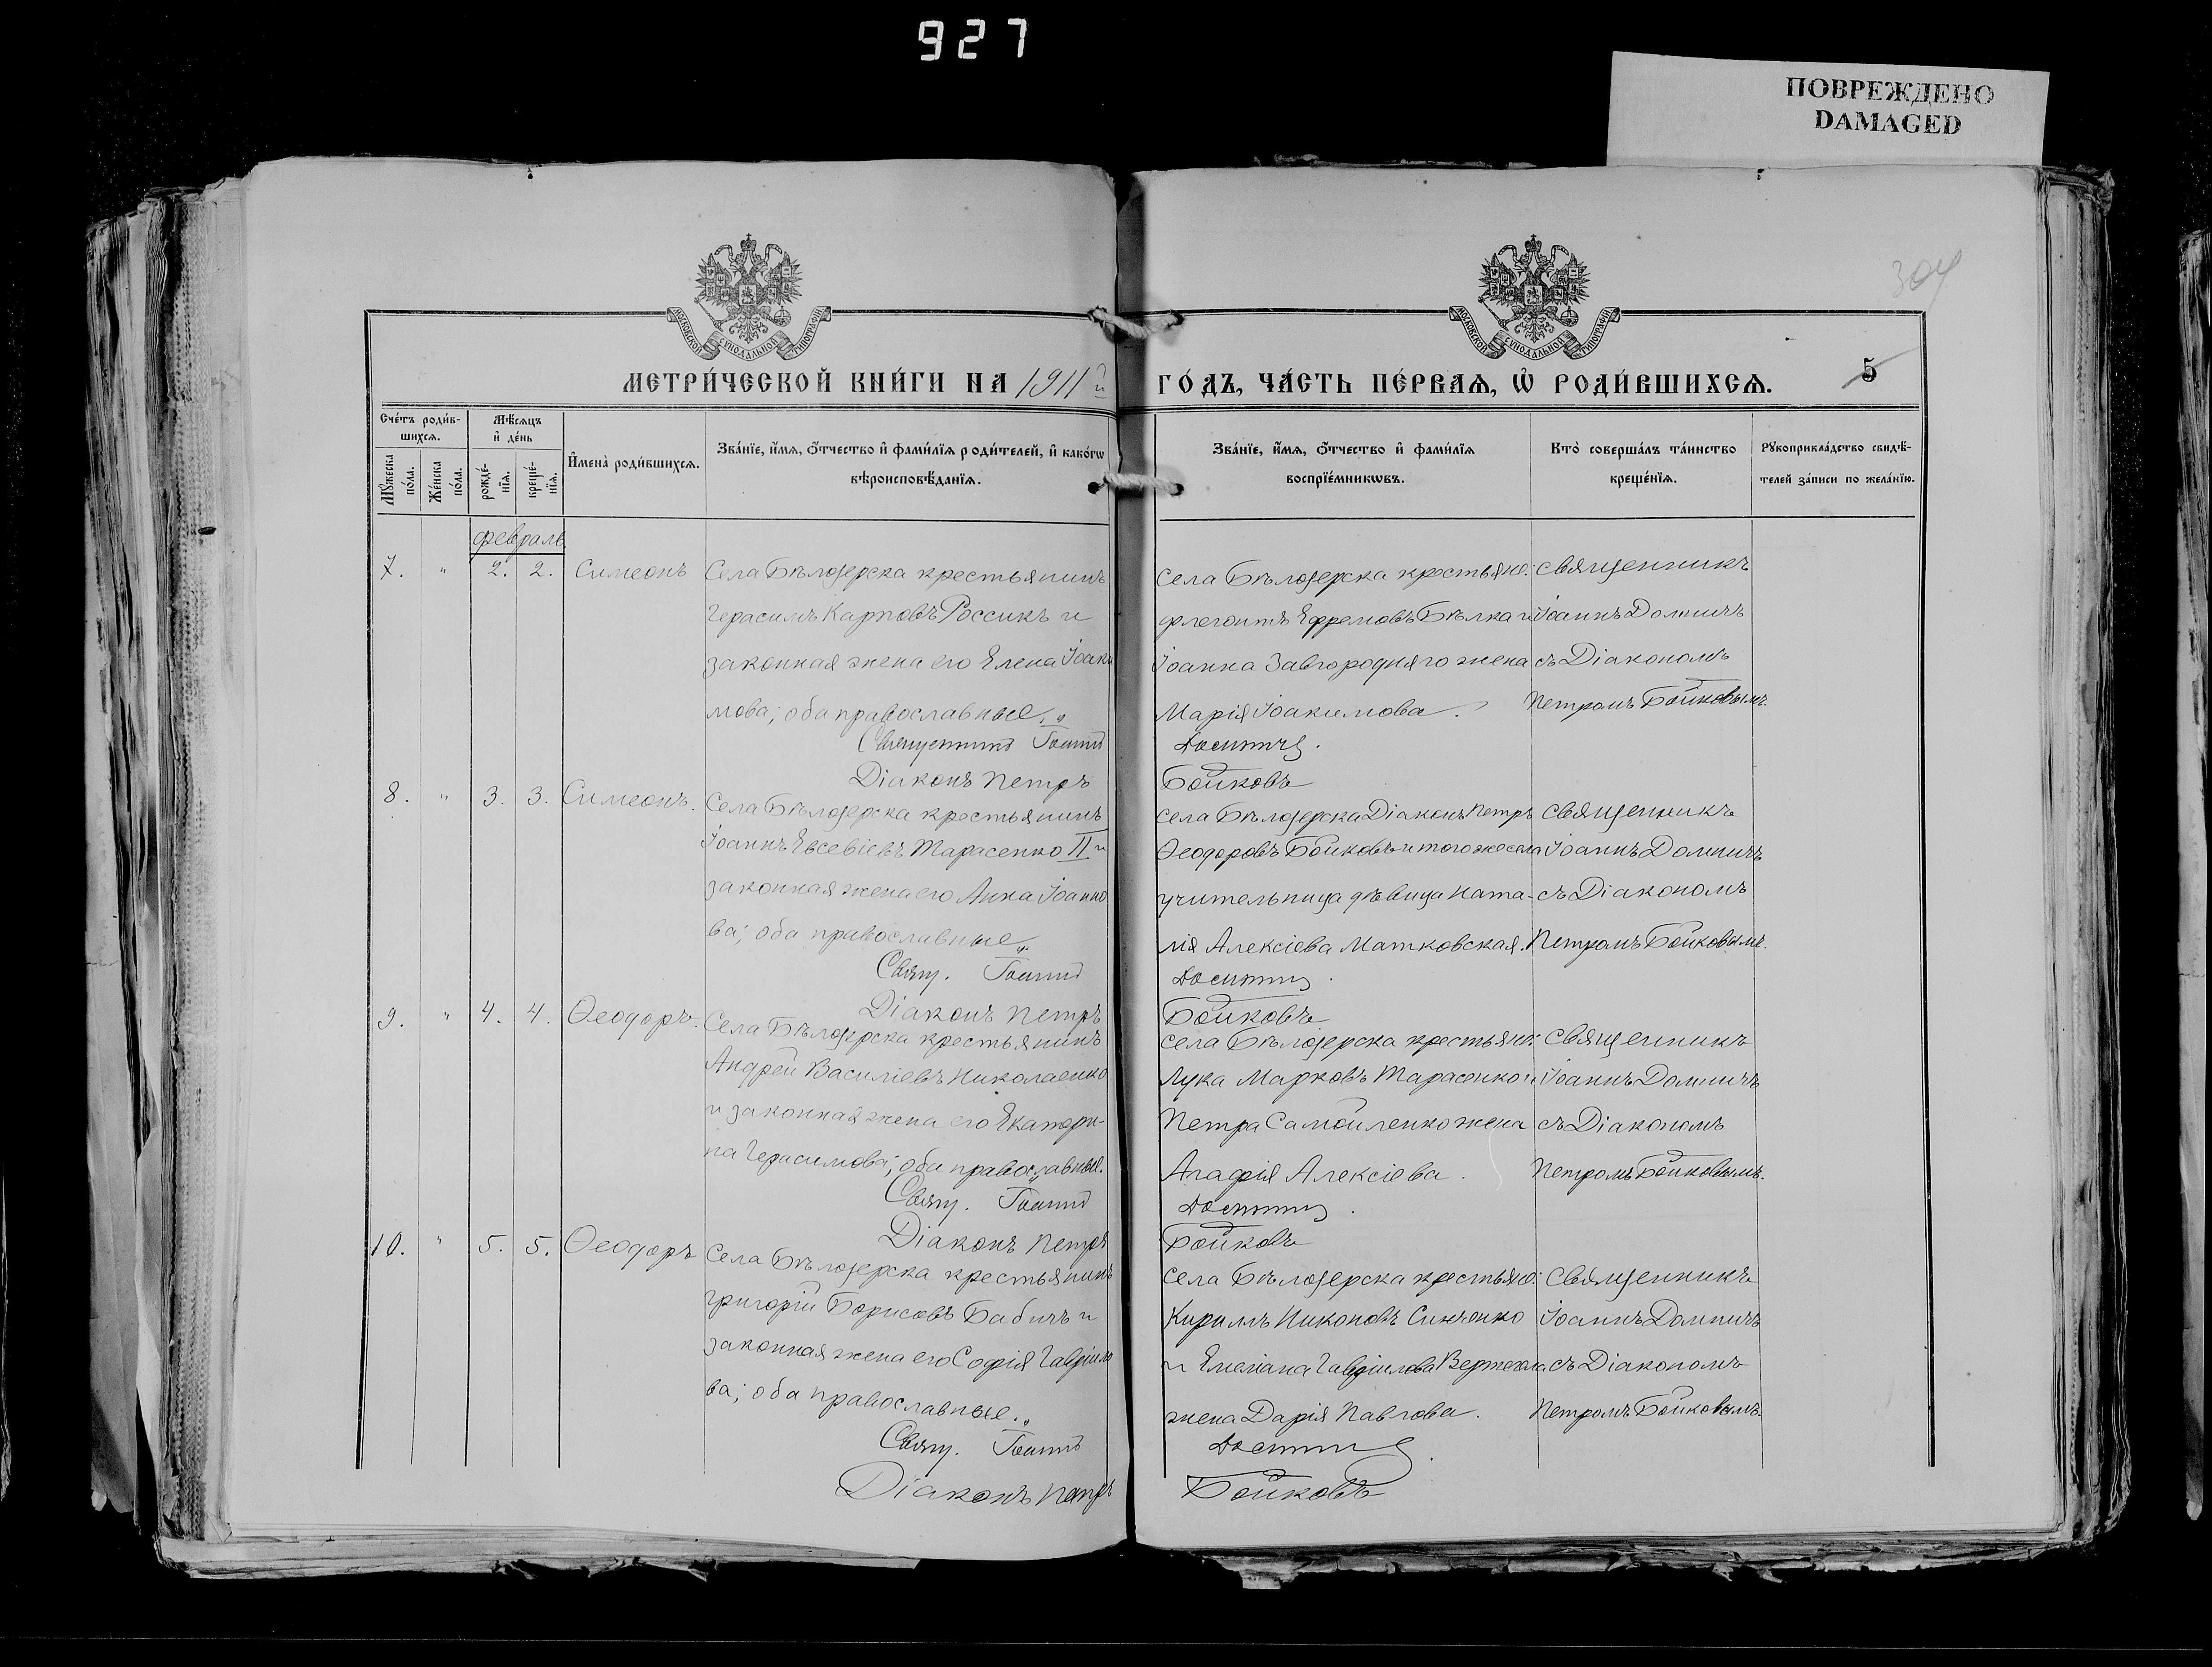 927
ПОВРЕЖДЕНО
DAMAGED
304
МОСКОВСКОЙ СѴНОДАЛЬНОЙ ТИПОГРАФІИ
МОСКОВСКОЙ СѴНОДАЛЬНОЙ ТИПОГРАФІИ
МЕТРИ́ЧЕСКОЙ КНИ́ГИ НА 1911й
ГО́ДЪ, ЧА́СТЬ ПЕ́РВАЯ, Ѡ҆ РОДИ́ВШИХСЯ.
5
Сче́тъ роди́в-
шихся.
Мѣ́сяцъ
и҆ де́нь
Мꙋ́жеска
по́ла.
Же́нска
по́ла.
рожде́-
нїя.
креще́-
нїя.
И҆мена̀ роди́вшихся.
Зва́нїе, и҆́мя, ѻ҆́тчество и҆ фами́лїя роди́телей, и҆ како́гѡ
вѣроисповѣ́данїя.
Зва́нїе, и҆́мя, ѻ҆́тчество и҆ фами́лїя
воспрїе́мникѡвъ.
Кто̀ соверша́лъ та́инство
креще́нїя.
Рꙋкоприкла́дство свидѣ́-
телей за́писи по жела́нїю.
февраль
7. " 2. 2. Симеонъ
Села Бѣлозерска крестьянинъ
Герасимъ Карповъ Россикъ и
законная жена его Елена Іоаки
мова; оба православные.
Священникъ Іоаннъ
Діаконъ Петръ
села Бѣлозерска крестьян:
Флегонтъ Ефремовъ Бѣлка и
Іоанна Завгородняго жена
Марія Іоакимова.
Бойковъ
священникъ
Іоаннъ
съ Діакономъ
Петромъ Бойковымъ.
8. " 3. 3. Симеонъ.
Села Бѣлозерска крестьянинъ
Іоаннъ Евсевіевъ Тарасенко II и
законная жена его Анна Іоанно
ва; оба православные
Свящ. Іоаннъ
Діаконъ Петръ
села Бѣлозерска Діаконъ Петръ
Ѳеодоровъ Бойковъ и того же села
учительница дѣвица Ната-
лія Алексіева Матковская.
Бойковъ
священникъ
Іоаннъ
съ Діакономъ
Петромъ Бойковымъ.
9. " 4. 4. Ѳеодоръ.
Села Бѣлозерска крестьянинъ
Андрей Василіевъ Николаенко
и законная жена его Екатери-
на Герасимова; оба православные.
Свящ. Іоаннъ
Діаконъ Петръ
села Бѣлозерска крестьян:
Лука Марковъ Тарасенко и
Петра Самойленко жена
Агафія Алексіева.
Бойковъ
священникъ
Іоаннъ
съ Діакономъ
Петромъ Бойковымъ.
10. " 5. 5. Ѳеодоръ
Села Бѣлозерска крестьянинъ
Григорій Борисовъ Бабичъ и
законная жена его Софія Гавріило
ва; оба православные.
Свящ. Іоаннъ
Діаконъ Петръ
села Бѣлозерска крестьян:
Кириллъ Никоновъ Синченко
и Емеліана Гавріилова
жена Дарія Павлова.
Бойковъ
Священникъ
Іоаннъ
съ Діакономъ
Петромъ Бойковымъ.